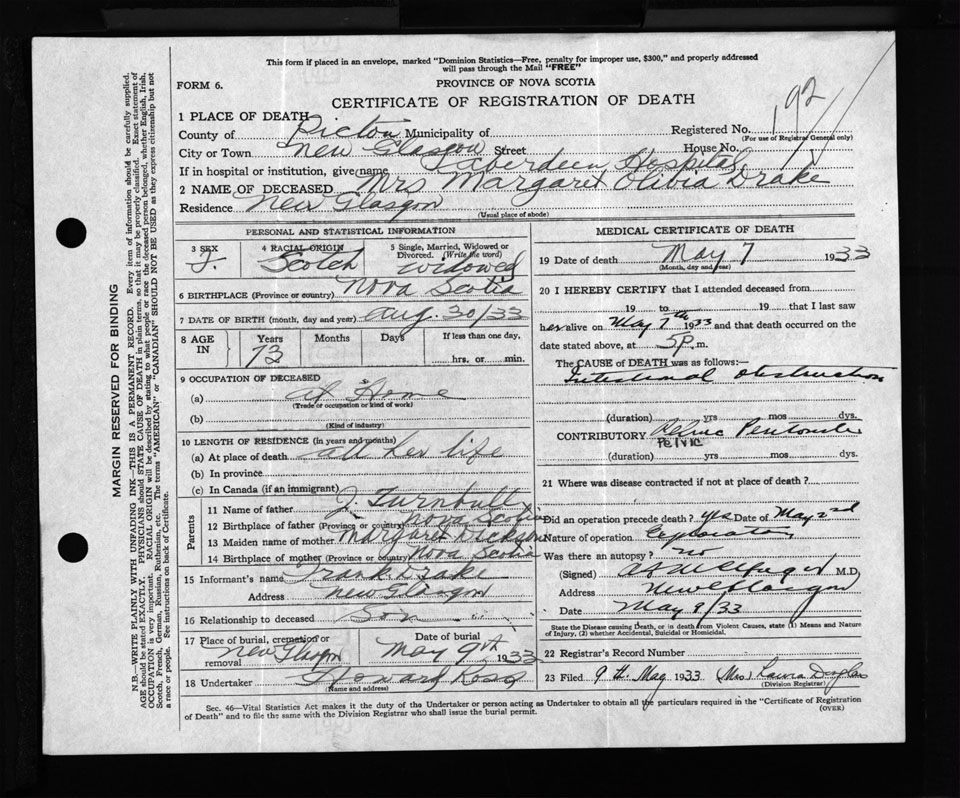 This form if placed in an envelope, marked "Dominion Statistics—Free, penalty for improper use, $300," and properly addressed
will pass through the Mail "FREE"
FORM 6.
PROVINCE OF NOVA SCOTIA
CERTIFICATE OF REGISTRATION OF DEATH
192
1 PLACE OF DEATH
County of Pictou Municipality of Registered No.
(For use of Registrar General only)
City or Town New Glasgow Street House No.
If in hospital or institution, give name Aberdeen Hospital
2 NAME OF DECEASED Mrs Margaret Olibia Drake
Residence New Glasgow
(Usual place of abode)
PERSONAL AND STATISTICAL INFORMATION
3 SEX F.
4 RACIAL ORIGIN Scotch
5 Single, Married, Widowed or Divorced. (Write the word) Widowed
6 BIRTHPLACE (Province or country) Nova Scotia
7 DATE OF BIRTH (month, day and year) Aug. 30/33
8 AGE IN Years Months Days If less than one day,
73 hrs. or min.
9 OCCUPATION OF DECEASED
(a) At Home
(Trade or occupation or kind of work)
(b)
(Kind of industry)
10 LENGTH OF RESIDENCE (in years and months)
(a) At place of death all her life
(b) In province
(c) In Canada (if an immigrant)
Parents
11 Name of father J. Turnbull
12 Birthplace of father (Province or country) Nova Scotia
13 Maiden name of mother Margaret Dickson
14 Birthplace of mother (Province or country) Nova Scotia
15 Informant's name Frank Drake
Address New Glasgow
16 Relationship to deceased Son
17 Place of burial, cremation or removal New Glasgow
Date of burial May 9th 1933
18 Undertaker Howard Ross
(Name and address)
MEDICAL CERTIFICATE OF DEATH
19 Date of death May 7 1933
(Month, day and year)
20 I HEREBY CERTIFY that I attended deceased from
19 to 19 that I last saw
her alive on May 7th 1933 and that death occurred on the
date stated above, at 5 P. m.
The CAUSE OF DEATH was as follows:—
Intestinal obstruction
(duration) yrs mos dys.
CONTRIBUTORY Pelvic Peritonitis
Pelvic
(duration) yrs mos dys.
21 Where was disease contracted if not at place of death?
Did an operation precede death? yes Date of May 2nd
Nature of operation Exploratory
Was there an autopsy? no
(Signed) M.D.
Address New Glasgow
Date May 9/33
State the Disease causing Death, or in death from Violent Causes, state (1) Means and Nature
of Injury, (2) whether Accidental, Suicidal or Homicidal.
22 Registrar's Record Number
23 Filed 9th May 1933 (Mrs) Laura Douglas
(Division Registrar)
Sec. 46—Vital Statistics Act makes it the duty of the Undertaker or person acting as Undertaker to obtain all the particulars required in the "Certificate of Registration
of Death" and to file the same with the Division Registrar who shall issue the burial permit.
(OVER)
MARGIN RESERVED FOR BINDING
N.B.—WRITE PLAINLY WITH UNFADING INK—THIS IS A PERMANENT RECORD. Every item of information should be carefully supplied.
AGE should be stated EXACTLY. PHYSICIANS should STATE CAUSE OF DEATH in plain terms, so that it may be properly classified. Exact statement of
OCCUPATION is very important. RACIAL ORIGIN will be described by stating to what people or race the deceased person belonged, whether English, Irish,
Scotch, French, German, Russian, Ruthenian, etc. The terms "AMERICAN" or "CANADIAN" SHOULD NOT BE USED as they express citizenship but not
a race or people. See instructions on back of Certificate.